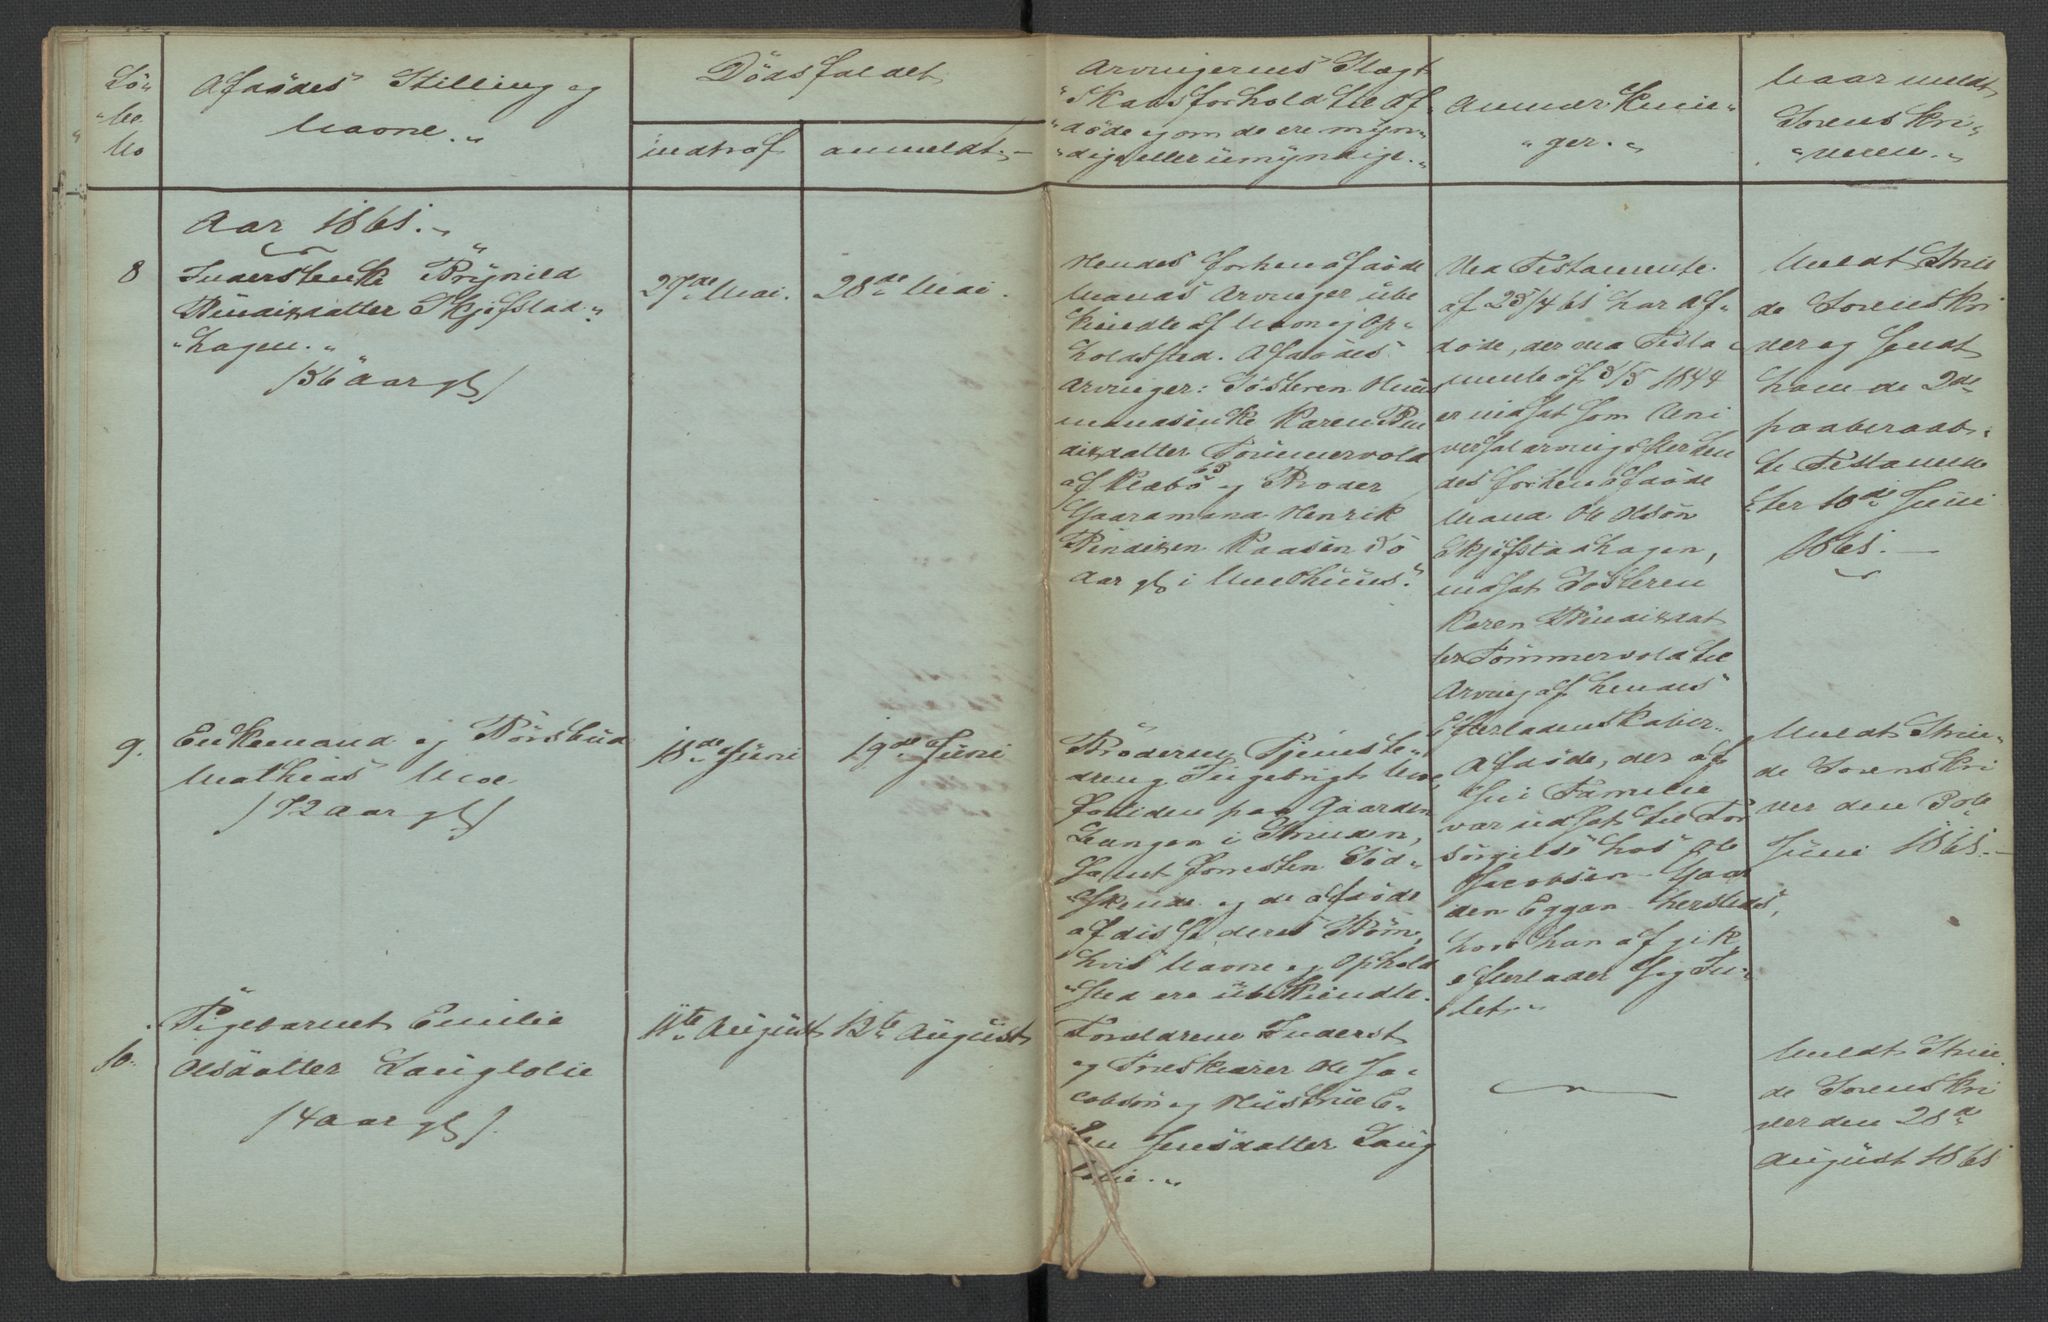 Lö-
be
No
Afdödes Stilling og
Navne.
Dödsfaldet
indtraf
anmeldt.
Arvingernes Slægt
skabsforhold til Af-
döde og om de ere myn-
dige eller umyndige.
Anmærknin-
ger.
Naar meldt
Sorenskri-
veren.
Aar 1861.
8
Inderstenke Brynild
datter Skjefstad-
hagen.
/56 Aar gl/
27de Mai.
28de Mai.
Hendes forhen afdöde
Mands Arvinger ube
kjendte af Navn og Op-
holdssted. Afdödes
Arvinger: Sösteren Huus
mandsenke Karen
datter Tömmervold
63
af Klæbö og Broder
Gaardmand Henrik
Kaasen 50
Aar gl i Melhuus.
Ved Testamente
af 25/4 61 har Af-
döde, der ved Testa
mente af 3/5 1844
er indsat som Uni
versalarving efter hen
des forhen afdöde
Mand Ole Olsön
Skjefstadhagen,
indsat Sösteren
Karen
ter Tömmervold til
Arving af hendes
Efterladenskaber.
Meldt Strin
de Sorenskri
ver og sendt
ham de 2de
paaberaab-
te Testamen
ter 10de Juni
1861.
9.
Enkemand og Börsbud
Mathias Moe
/72 Aar gl/
18de Juni
19de Juni
Broderen Tjeneste-
dreng Ingebrigt Moe,
for tiden paa Gaarden
Leangen i Strinden,
samt forresten Söd-
skende og de afdöde
af disse deres Börn,
hvis Navne og Ophold
sted ere ubekjendte.
Afdöde, der af
sin Familie
var udsat til For
sörgelse hos Ole
Jacobsön Gaar
den Eggan hersteds,
hvor han afgik,
efterlader sig In-
tet.
Meldt Strin-
de Sorenskri
ver den 30te
Juni 1861.
10.
Pigebarnet Emilie
Olsdatter Lauglolie
/4 Aar gl/.
11te August
12te August
Forældrene Inderst
og Træskjærer Ole Ja-
cobsön og Hustrue E-
len Jensdatter Laug
lolie.
Meldt Strin
de Sorenskri
ver den 28de
August 1861